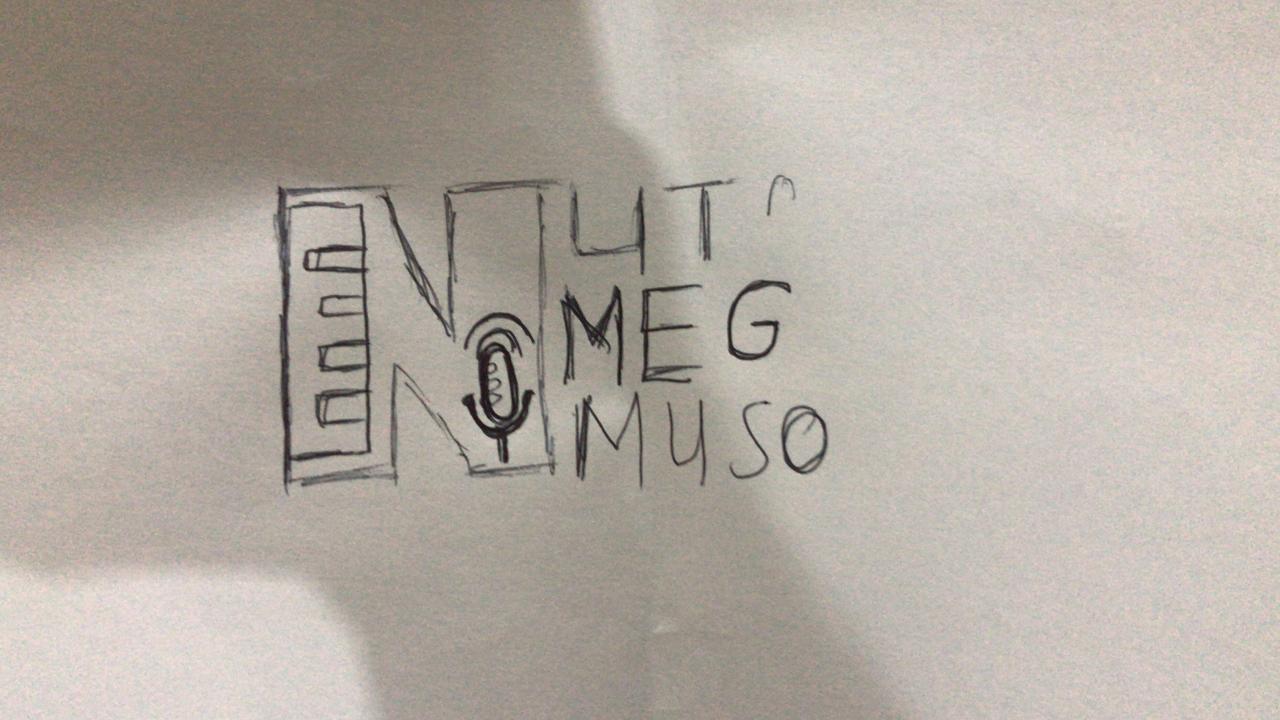 N UT
MEG
MUSO